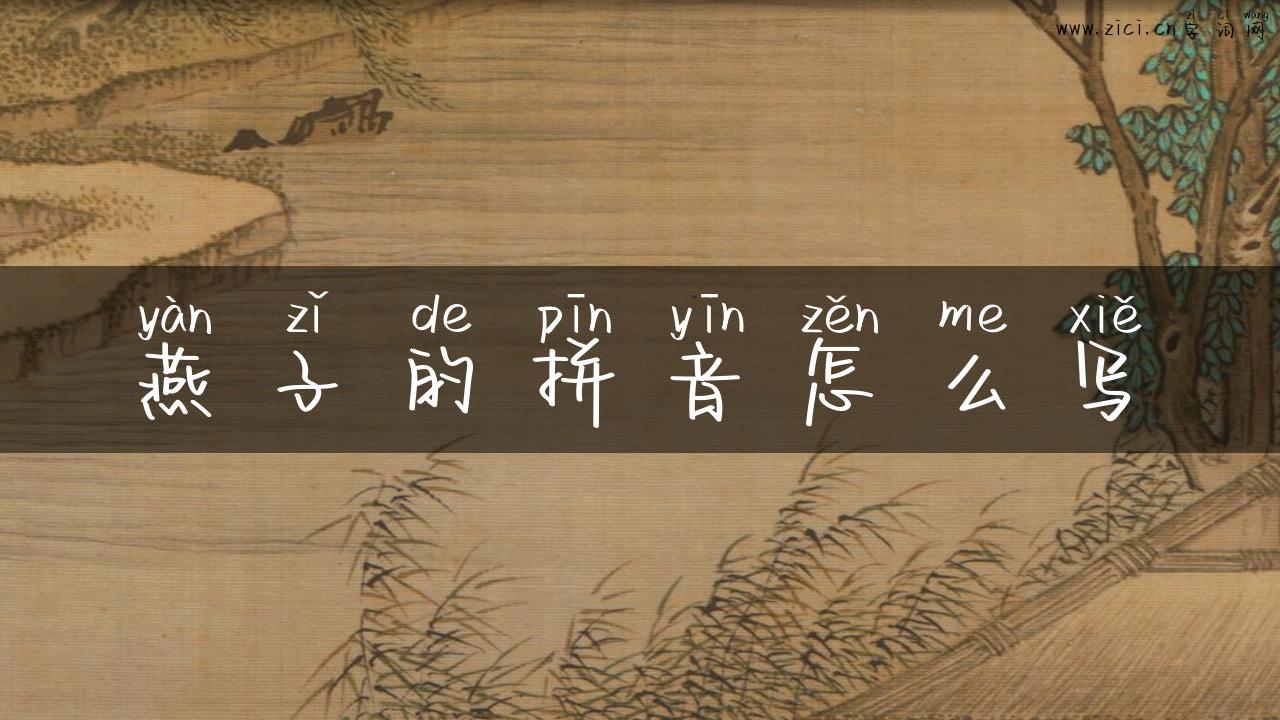 zì cí wǎng
www.zici.cn 字词网
yàn zǐ de pīn yīn zěn me xiě
燕子的拼音怎么写